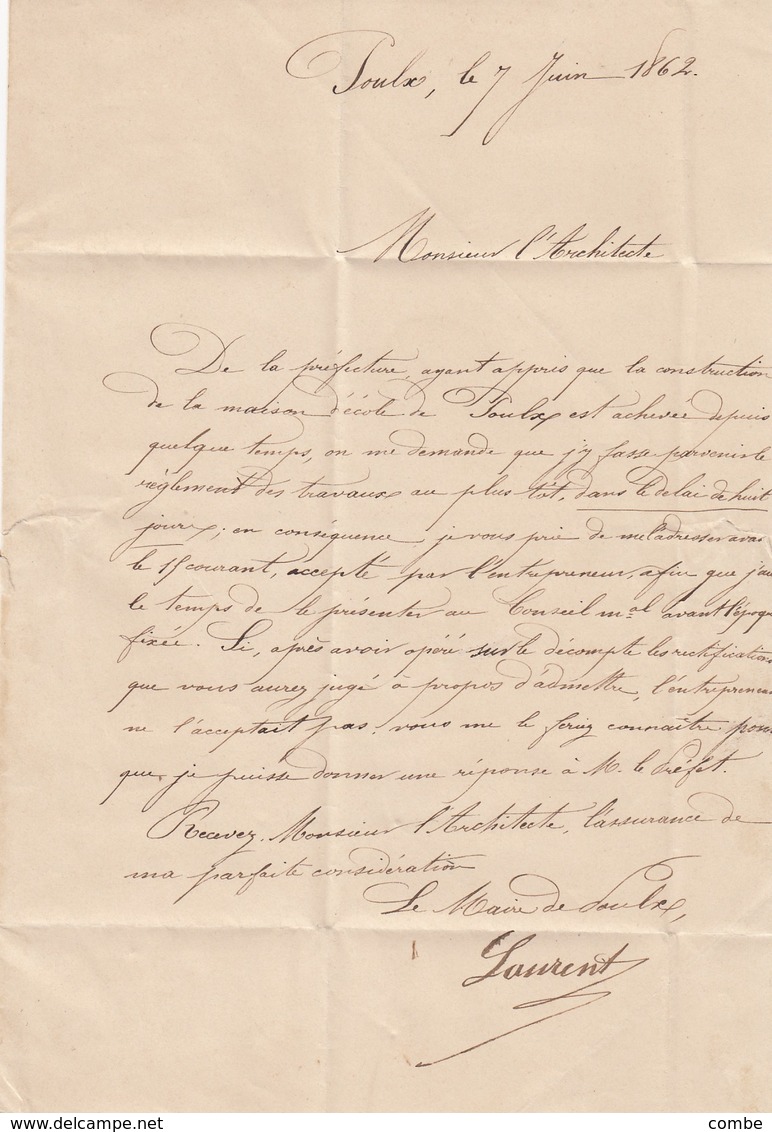 Poulx, le 7 Juin 1862.
Monsieur l'Architecte
De la préfecture, ayant appris que la construction
de la maison d'école de Poulx est achevée depuis
quelque temps, on me demande que j'y fasse parvenir le
règlement des travaux au plus tôt, dans le délai de huit
jours; en conséquence, je vous prie de me l'adresser avan
le 15 courant, accepté par l'entrepreneur, afin que j'aie
le temps de le présenter au Conseil mal avant l'époque
fixée. Si, après avoir opéré sur le décompte les rectifications
que vous aurez jugé à propos d'admettre, l'entrepreneur
ne l'acceptait pas, vous me le feriez connaître pour
que je puisse donner une réponse à M. le Préfet.
Recevez, Monsieur l'Architecte, l'assurance de
ma parfaite considération
Le Maire de Poulx,
Laurent
www.delcampe.net
combe